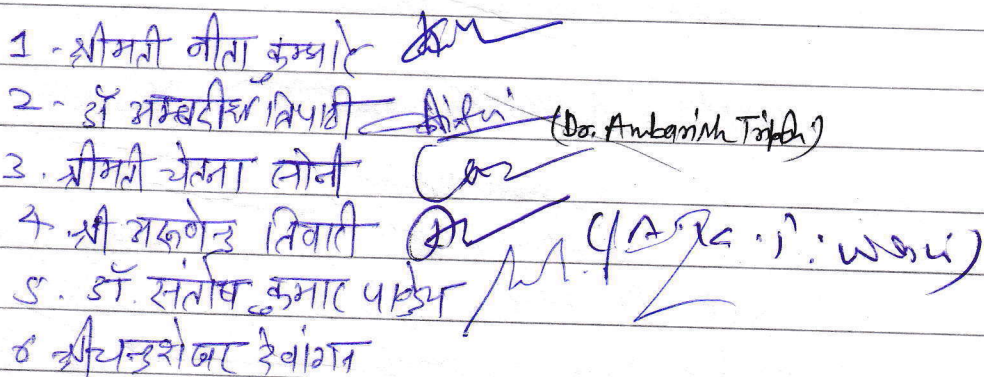 1 - श्रीमती नीता कुम्भारे
2 - डॉ अम्बरीश त्रिपाठी (Dr. Ambarish Tripathi)
3. श्रीमती चेतना सोनी
4. श्री अरूणेन्द्र तिवारी
5. डॉ. संतोष कुमार पाण्डेय
6 श्री चन्द्रशेखर देवांगन